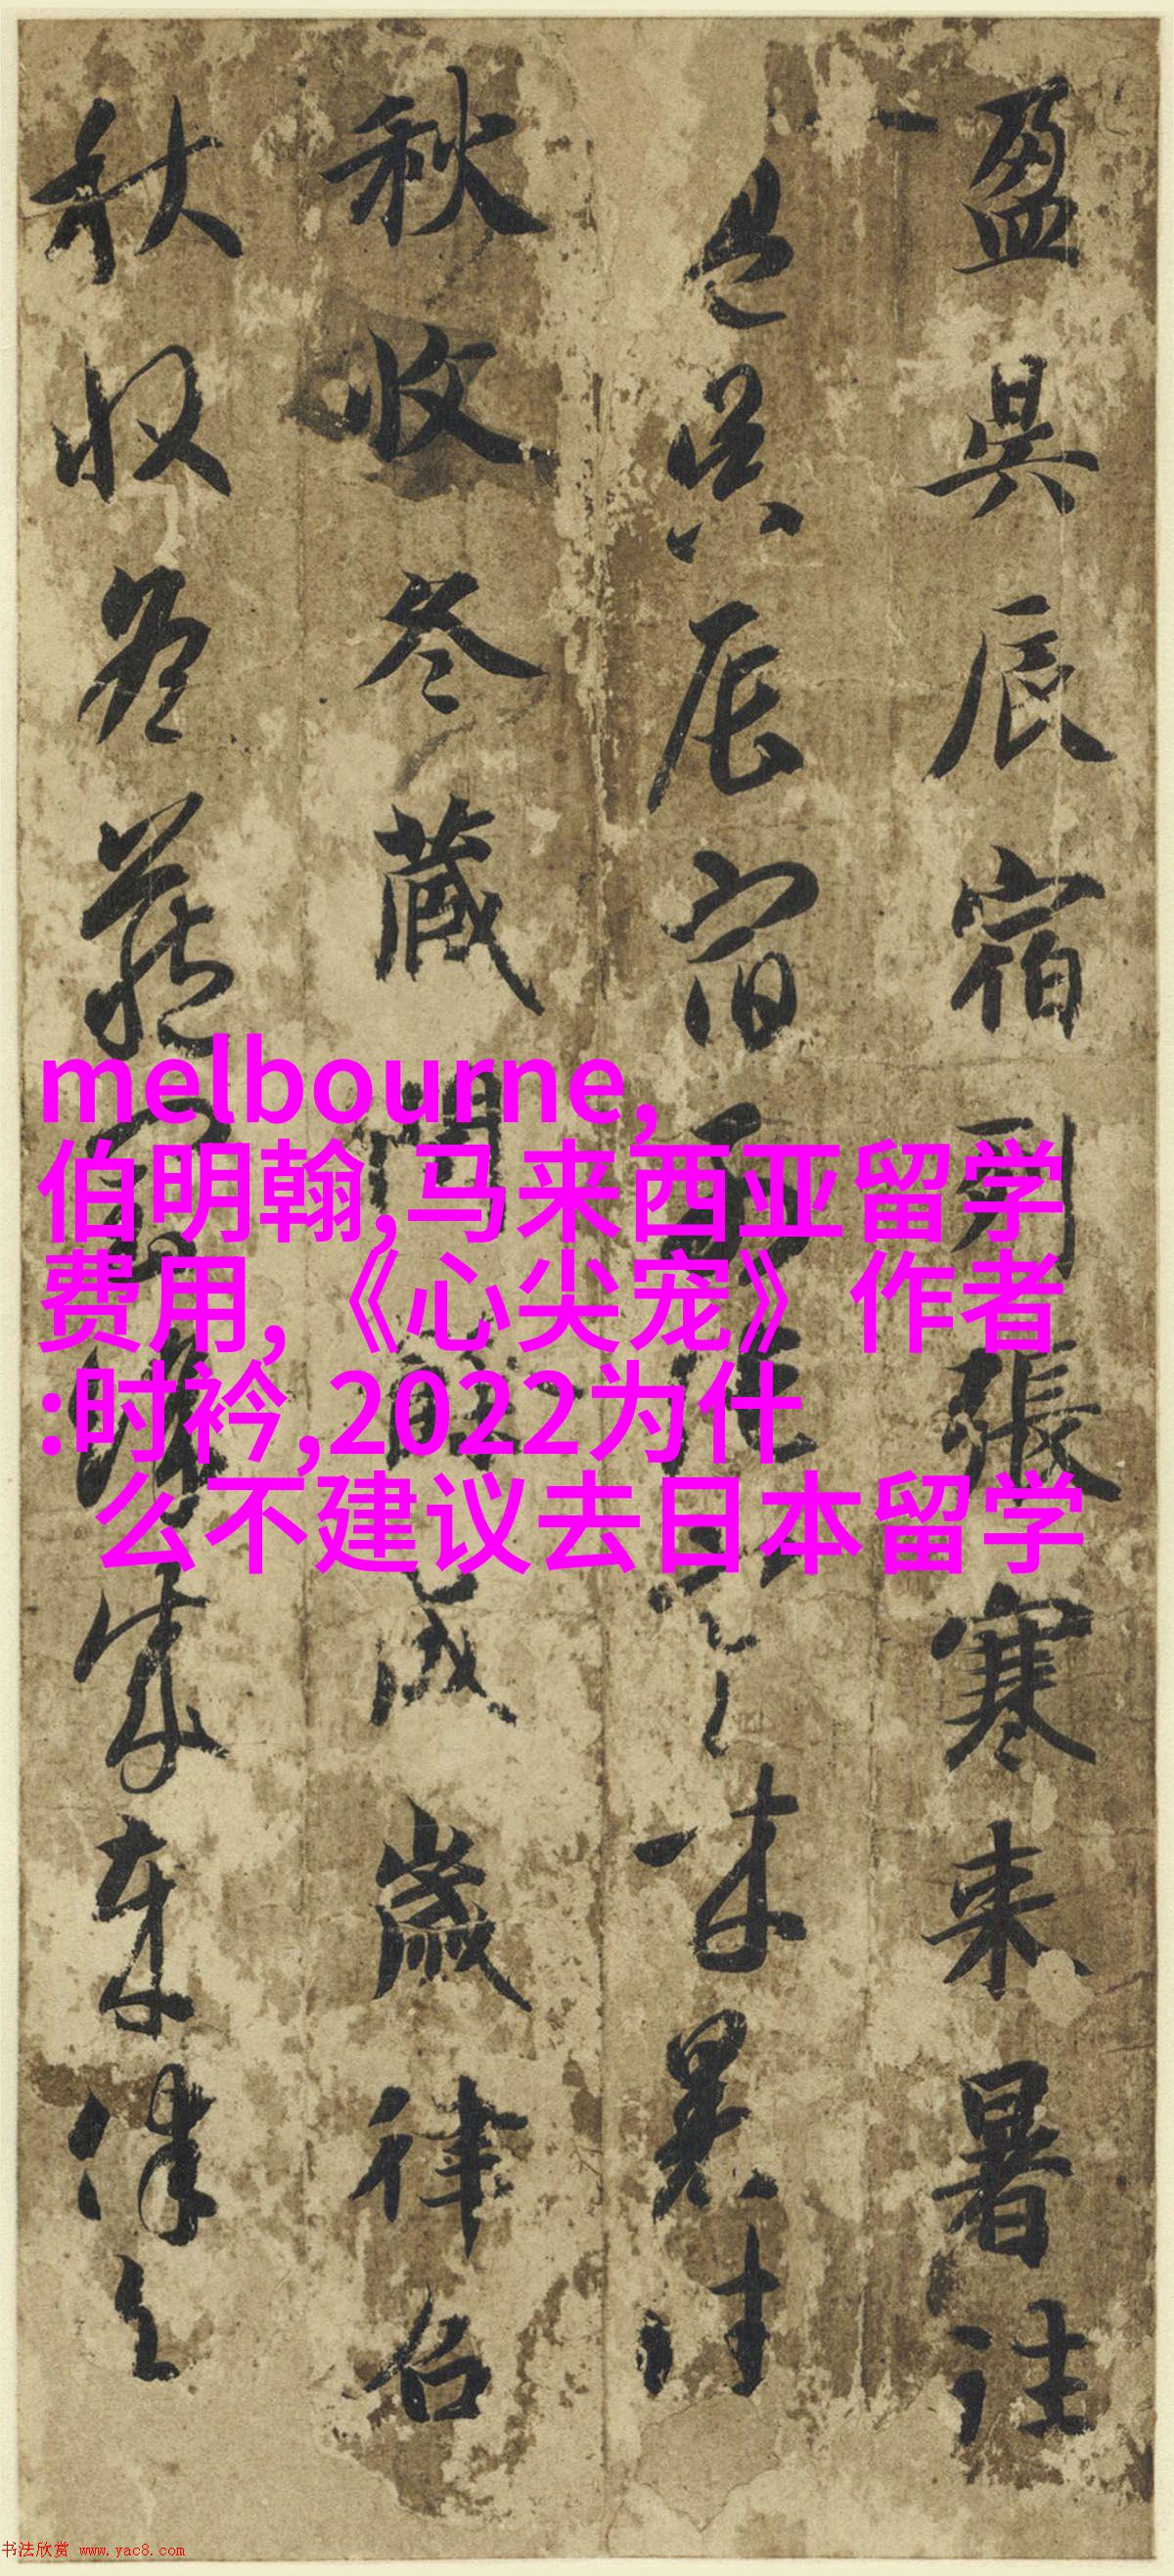 盈昃辰宿列張寒来暑往
昃辰宿来暑往
秋收冬藏閏成歲律召
秋收冬藏成歲律
melbourne,
伯明翰,马来西亚留学
费用,《心尖宠》 作者
:时衿,2022为什
么不建议去日本留学
书法欣赏 www.yac8.com